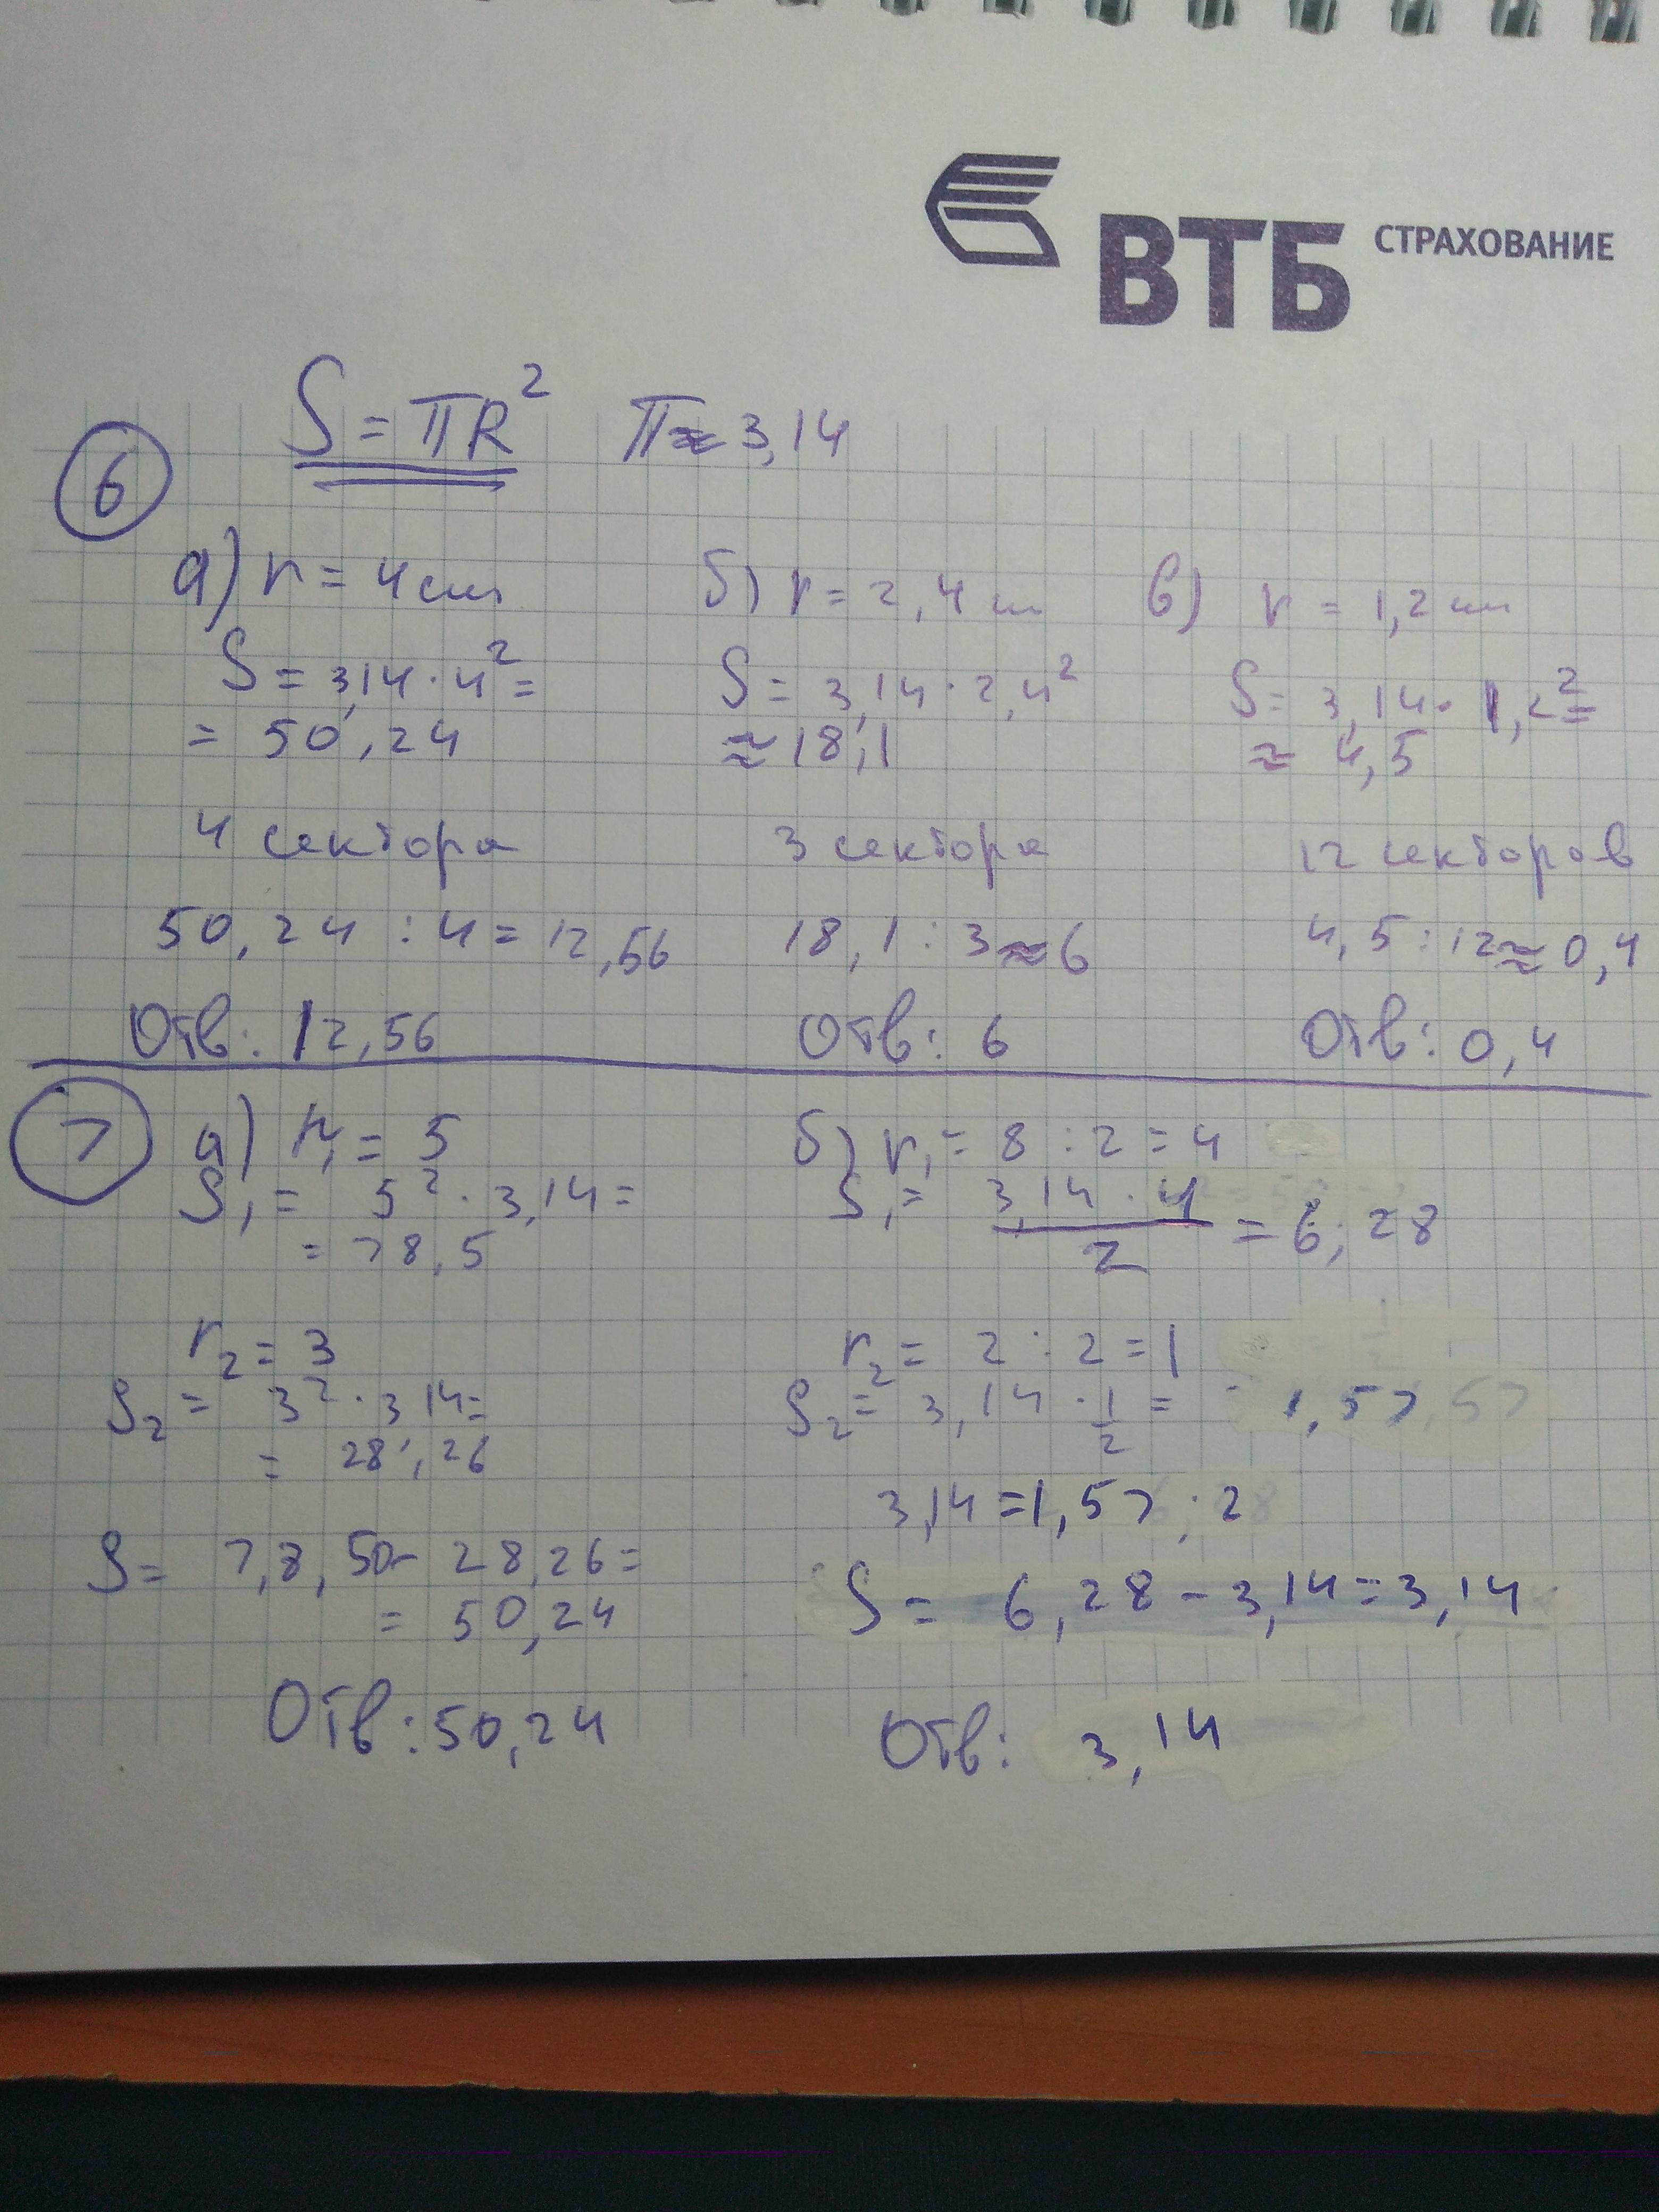 ВТБ СТРАХОВАНИЕ
S = πR² π ≈ 3,14
6
а) r = 4 см
S = 3,14 · 4² =
= 50,24
4 сектора
50,24 : 4 = 12,56
Отв: 12,56
б) r = 2,4 см
S = 3,14 · 2,4²
≈ 18,1
3 сектора
18,1 : 3 ≈ 6
Отв: 6
в) r = 1,2 см
S = 3,14 · 1,2² =
≈ 4,5
12 секторов
4,5 : 12 ≈ 0,4
Отв: 0,4
7
а) r₁ = 5
S₁ = 5² · 3,14 =
= 78,5
r₂ = 3
S₂ = 3² · 3,14 =
= 28,26
S = 7,8,50 - 28,26 =
= 50,24
Отв: 50,24
б) r₁ = 8 : 2 = 4
S₁ = 3,14 · 4 / 2 = 6,28
r₂ = 2 : 2 = 1
S₂ = 3,14 · 1/2 = 1,57
3,14 = 1,57 · 2
S = 6,28 - 3,14 = 3,14
Отв: 3,14